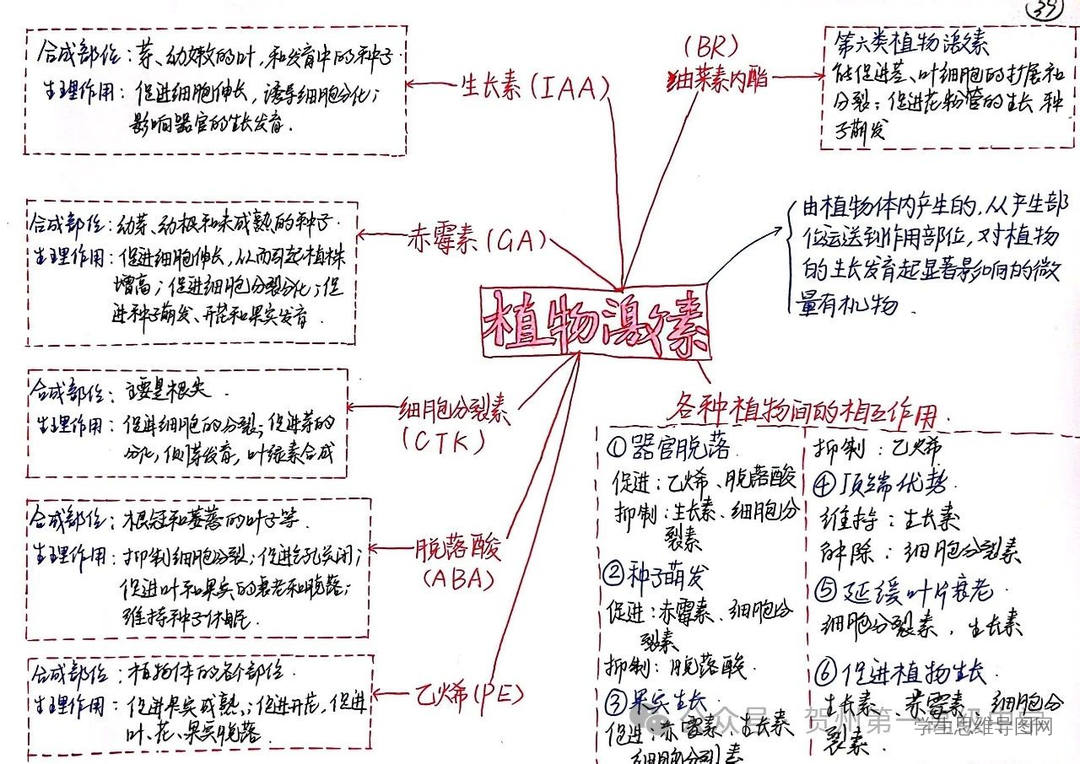 39
合成部位：芽、幼嫩的叶，和发育中的种子
生理作用：促进细胞伸长，诱导细胞分化；
影响器官的生长发育.
生长素(IAA)
(BR)
油菜素内酯
第六类植物激素
能促进茎、叶细胞的扩展和
分裂；促进花粉管的生长 种
子萌发
合成部位：幼芽、幼根和未成熟的种子.
生理作用：促进细胞伸长，从而引起植株
增高；促进细胞分裂分化；促
进种子萌发、开花和果实发育.
赤霉素(GA)
由植物体内产生的，从产生部
位运送到作用部位，对植物
的生长发育起显著影响的微
量有机物.
植物激素
合成部位：主要是根尖.
生理作用：促进细胞的分裂；促进芽的
分化，侧芽发育，叶绿素合成
细胞分裂素
(CTK)
合成部位：根冠和萎蔫的叶子等.
生理作用：抑制细胞分裂；促进气孔关闭；
促进叶和果实的衰老和脱落；
维持种子休眠.
脱落酸
(ABA)
合成部位：植物体的各个部位.
生理作用：促进果实成熟；促进开花，促进
叶、花、果实脱落.
乙烯(PE)
各种植物间的相互作用.
①器官脱落
促进：乙烯、脱落酸
抑制：生长素、细胞分
裂素
②种子萌发
促进：赤霉素、细胞分
裂素
抑制：脱落酸.
③果实生长
促进：赤霉素、生长素
细胞分裂素
抑制：乙烯
④顶端优势.
维持：生长素
解除：细胞分裂素
⑤延缓叶片衰老.
细胞分裂素、生长素
⑥促进植物生长.
生长素、赤霉素、细胞分
裂素.
公众号·贺州第一
学生思维导图网